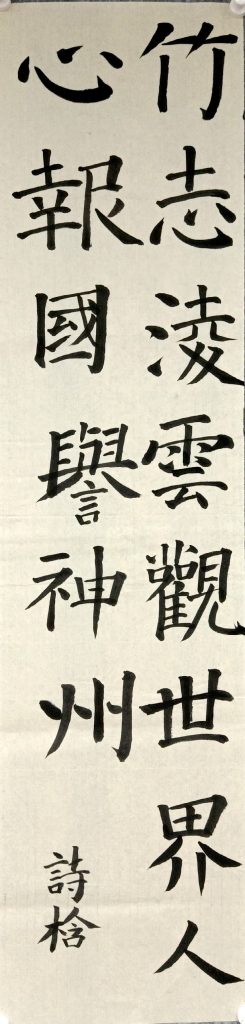 竹志凌雲觀世界人
心報國譽神州
詩棯